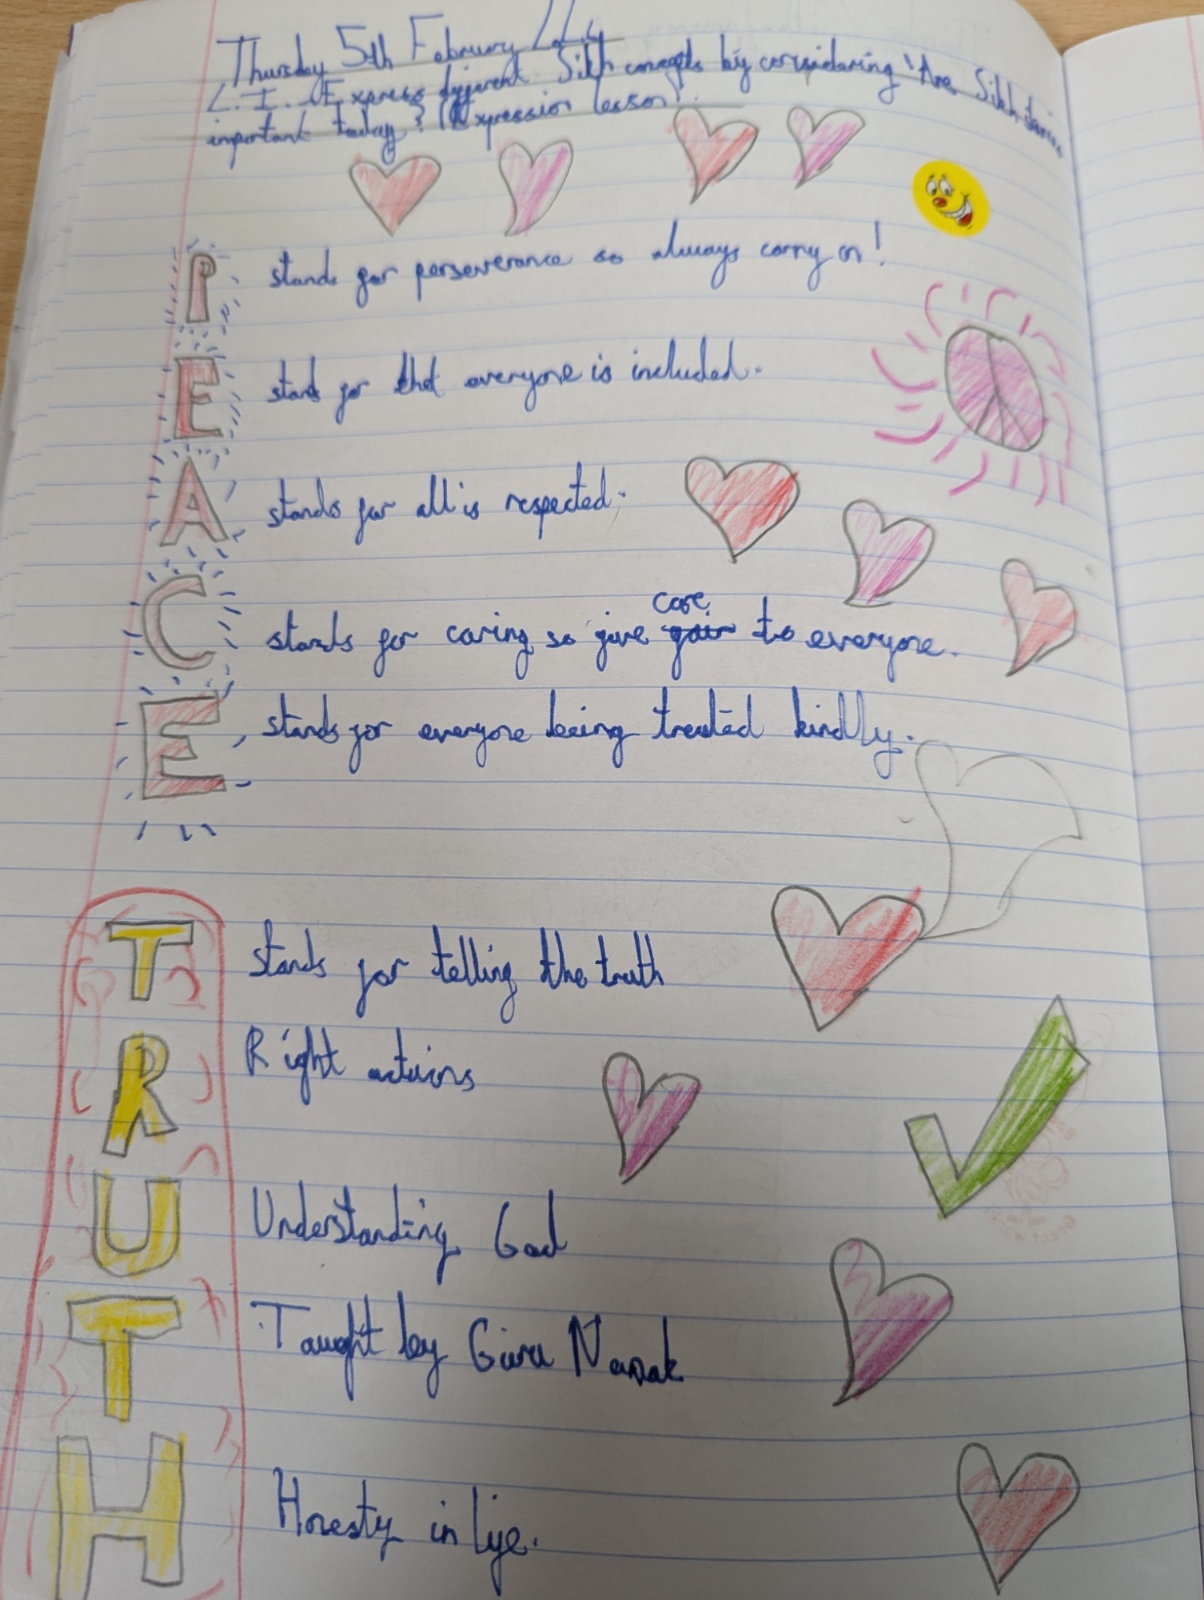 Thursday 5th February
L.I. Express different Sikh concepts by considering 'Are Sikh
important today? (Expression lesson).
P stands for perseverance so always carry on!
E stands for that everyone is included.
A stands for all is respected.
care
C stands for caring so give to everyone.
E stands for everyone being treated kindly.
T stands for telling the truth
R Right actions
U Understanding God
T Taught by Guru Nanak
H Honesty in life.